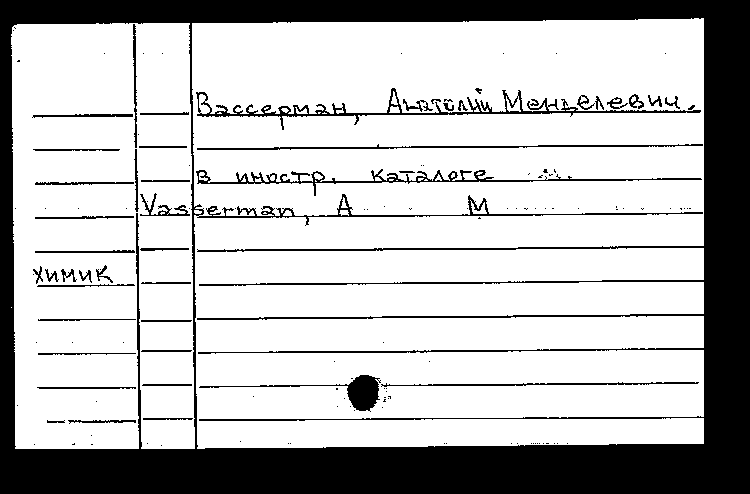 Вассерман, Анатолий Менделевич.
в иностр. каталоге
Vasserman, А М
химик